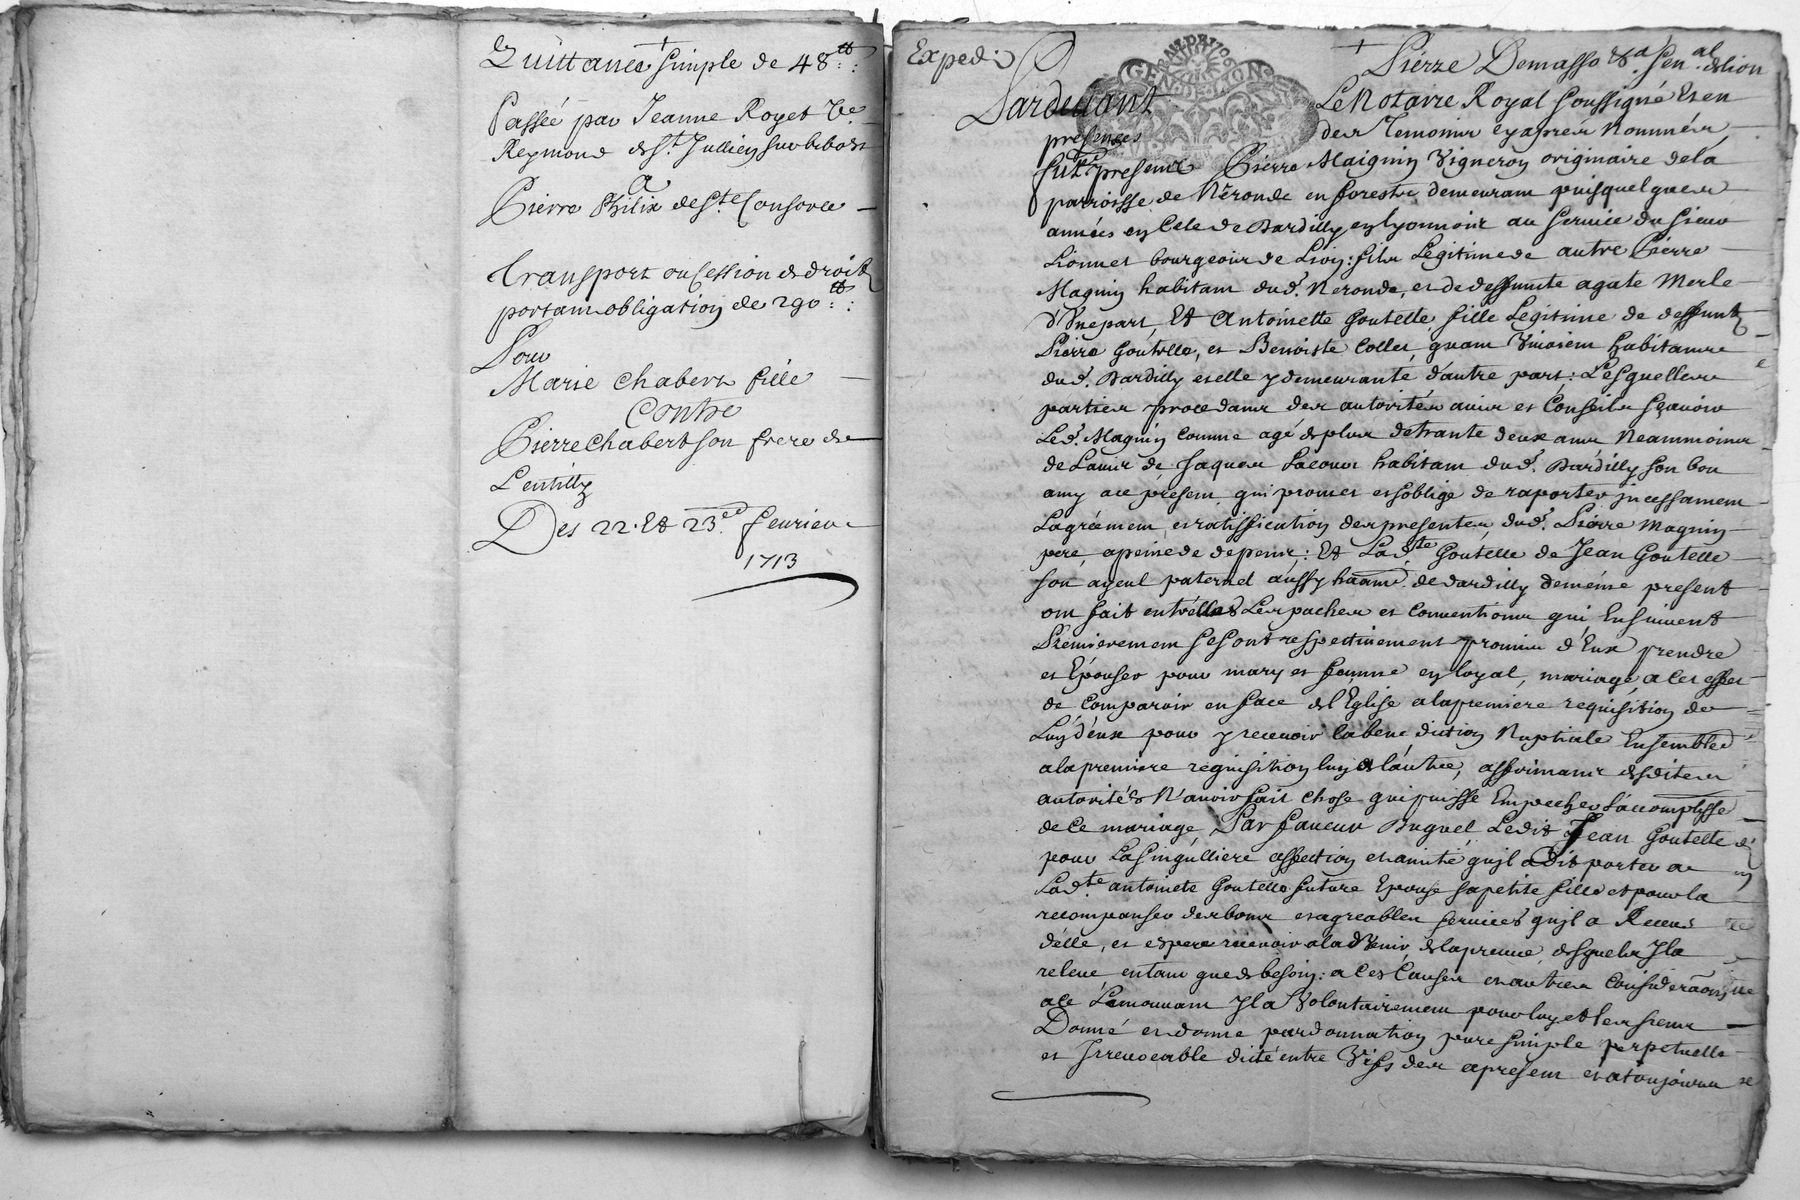 Quittance simple de 48tt:
Passée par Jeanne Royet Ve
Reymond de St Jullien sur bibost
a
Pierre Philix de Ste Consorce
Transport ou Cession de droit
portant obligation de 290tt:
Pour
Marie Chabert fille
Contre
Pierre Chabert son frere de
Lentilly
Des 22. Et 23e feurier
1713
Exped:
GEN DE LION
Pierre Demasso &a Senal de lion
Pardeuant Le Notaire Royal soussigné Et en
presences des Temoins cy apres Nommés
fut present Pierre Maignin Vigneron originaire de la
parroisse de Néronde en forest demeurant puis quelques
années en Celle de Dardilly en lyonnois au seruice du sieur
Lionnet bourgeois de Lion: fils Legitime de autre Pierre
Magnin habitant dud. Neronde, et de deffunte agate Merle
d'Vne part, Et Antoinette Goutelle fille Legitime de deffunt
Pierre Goutelle, et Benoiste Collet, quant Viuoient habitants
dud. Dardilly et elle y demeurante d'autre part: Lesquelles
parties procedants des autorités auis et Conseils sçauoir
Led. Magnin comme agé de plus de trante deux ans Neammoins
de L'auis de Jaques Lacour habitant dud. Dardilly son bon
amy a ce présent qui promet et s'oblige de raporter incessament
L'agréement et ratiffication des presentes dud. Pierre Magnin
pere apeine de depens: Et Lad.te Goutelle de Jean Goutelle
son ayeul paternel aussy habitant de dardilly de méme present
ont fait entrelles Les paches et Conuentions qui Ensuiuent
Premierement se sont respectiuement promis d'Eux prendre
et Epouser pour mary et femme en loyal mariage, a Cet effet
de Comparoir en face de l'Eglise a la premiere requisition de
L'un d'eux pour y receuoir la bene diction Nuptiale Ensemble
a la premiere requisition l'un de l'autre, affirmants desdites
autorités N'auoir fait chose qui puisse Empecher L'accomplisse
de Ce mariage, En faueur Duquel Ledit Jean Goutelle
pour La singulliere affection et amitié qu'il a Dit porter a
Lad.te antoinete Goutelle future Epouse sa petite fille et pour la
recompanser des bons et agreables seruices qu'il a Receus
d'elle, et espere receuoir a l'aduenir, de la preuue desquels Jl a
releué en tant que de besoin: a Ces Causes et autres Consideraõns
a Ce Lemouuant Jl a Volontairement pour luy et les siens
Donné et donne par donnation pure simple perpetuelle
et Jrreuocable dite entre Vifs des a present et a toujours